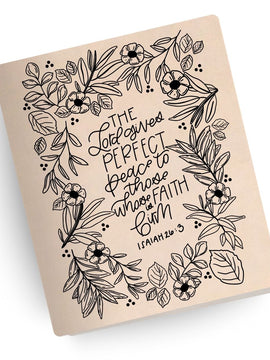 THE
Lord gives
PERFECT
peace to
those
whose FAITH
is
firm
ISAIAH 26:3